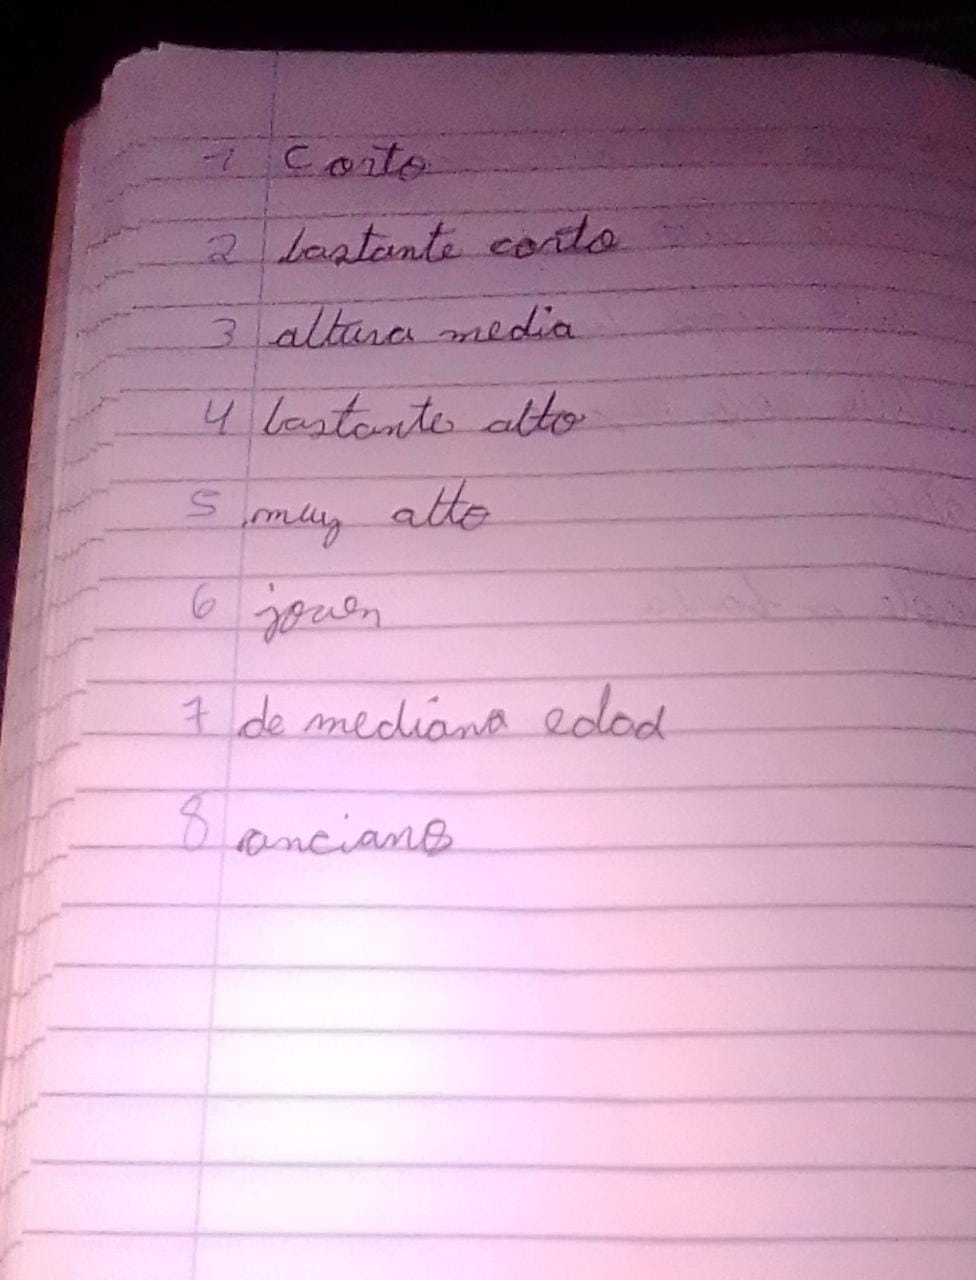 1 Corto
2 bastante corto
3 altura media
4 bastante alto
5 muy alto
6 joven
7 de mediana edad
8 anciano